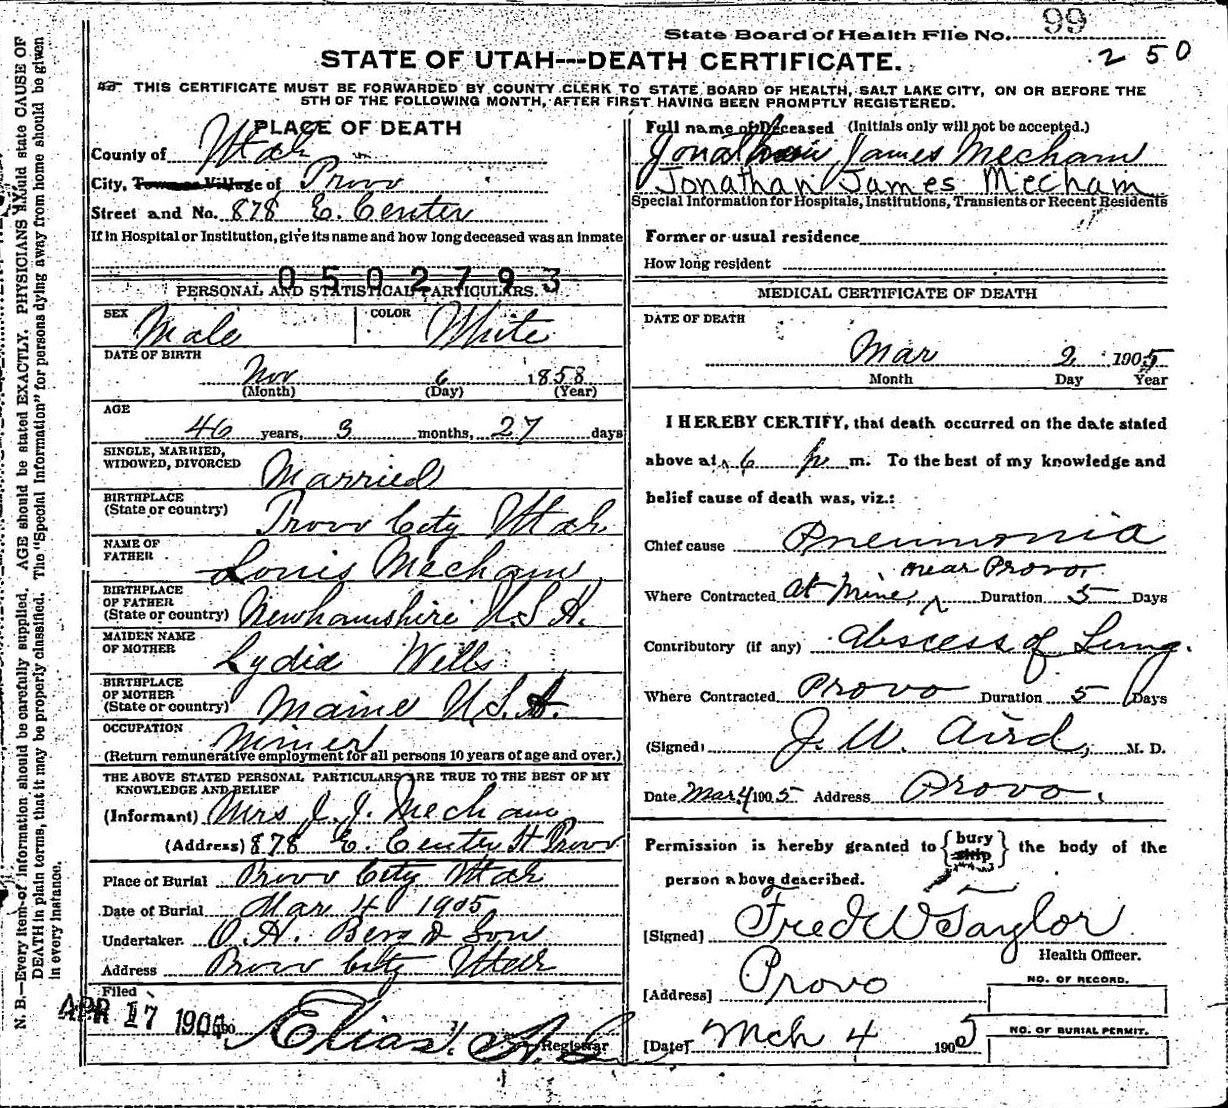 State Board of Health File No. 99
250
STATE OF UTAH---DEATH CERTIFICATE.
THIS CERTIFICATE MUST BE FORWARDED BY COUNTY CLERK TO STATE BOARD OF HEALTH, SALT LAKE CITY, ON OR BEFORE THE
5TH OF THE FOLLOWING MONTH, AFTER FIRST HAVING BEEN PROMPTLY REGISTERED.
PLACE OF DEATH
County of Utah
City, Town or Village of Provo
Street and No. 878 E. Center
If in Hospital or Institution, give its name and how long deceased was an inmate
0502793
PERSONAL AND STATISTICAL PARTICULARS.
SEX Male COLOR White
DATE OF BIRTH
Nov 6 1858
(Month) (Day) (Year)
AGE
46 years, 3 months, 27 days
SINGLE, MARRIED,
WIDOWED, DIVORCED Married
BIRTHPLACE
(State or country) Provo City Utah
NAME OF
FATHER Louis Mecham
BIRTHPLACE
OF FATHER
(State or country) Newhamshire U.S.A.
MAIDEN NAME
OF MOTHER Lydia Wells
BIRTHPLACE
OF MOTHER
(State or country) Maine U.S.A.
OCCUPATION Miner
(Return remunerative employment for all persons 10 years of age and over.)
THE ABOVE STATED PERSONAL PARTICULARS ARE TRUE TO THE BEST OF MY
KNOWLEDGE AND BELIEF
(Informant) Mrs J. J. Mecham
(Address) 878 E. Center St Provo
Place of Burial Provo City Utah
Date of Burial Mar 4 1905
Undertaker. O.H. Berg & Son
Address Provo City Utah
Filed
APR 17 190
Elias Registrar
Full name of Deceased (Initials only will not be accepted.)
Jonathan James Mecham
Jonathan James Mecham
Special Information for Hospitals, Institutions, Transients or Recent Residents
Former or usual residence
How long resident
MEDICAL CERTIFICATE OF DEATH
DATE OF DEATH
Mar 2 1905
Month Day Year
I HEREBY CERTIFY, that death occurred on the date stated
above at 6 p m. To the best of my knowledge and
belief cause of death was, viz.:
Chief cause Pneumonia
near Provo.
Where Contracted At Mine, Duration 5 Days
Contributory (if any) abscess of Lung.
Where Contracted Provo Duration 5 Days
(Signed) J. W. Aird, M. D.
Date Mar. 4 1905 Address Provo.
Permission is hereby granted to {bury ship} the body of the
person above described.
[Signed] Fred W Taylor
Health Officer.
[Address] Provo
NO. OF RECORD.
NO. OF BURIAL PERMIT.
[Date] Mch 4 1905
N. B.—Every item of information should be carefully supplied. AGE should be stated EXACTLY. PHYSICIANS should state CAUSE OF
DEATH in plain terms, that it may be properly classified. The "Special Information" for persons dying away from home should be given
in every instance.